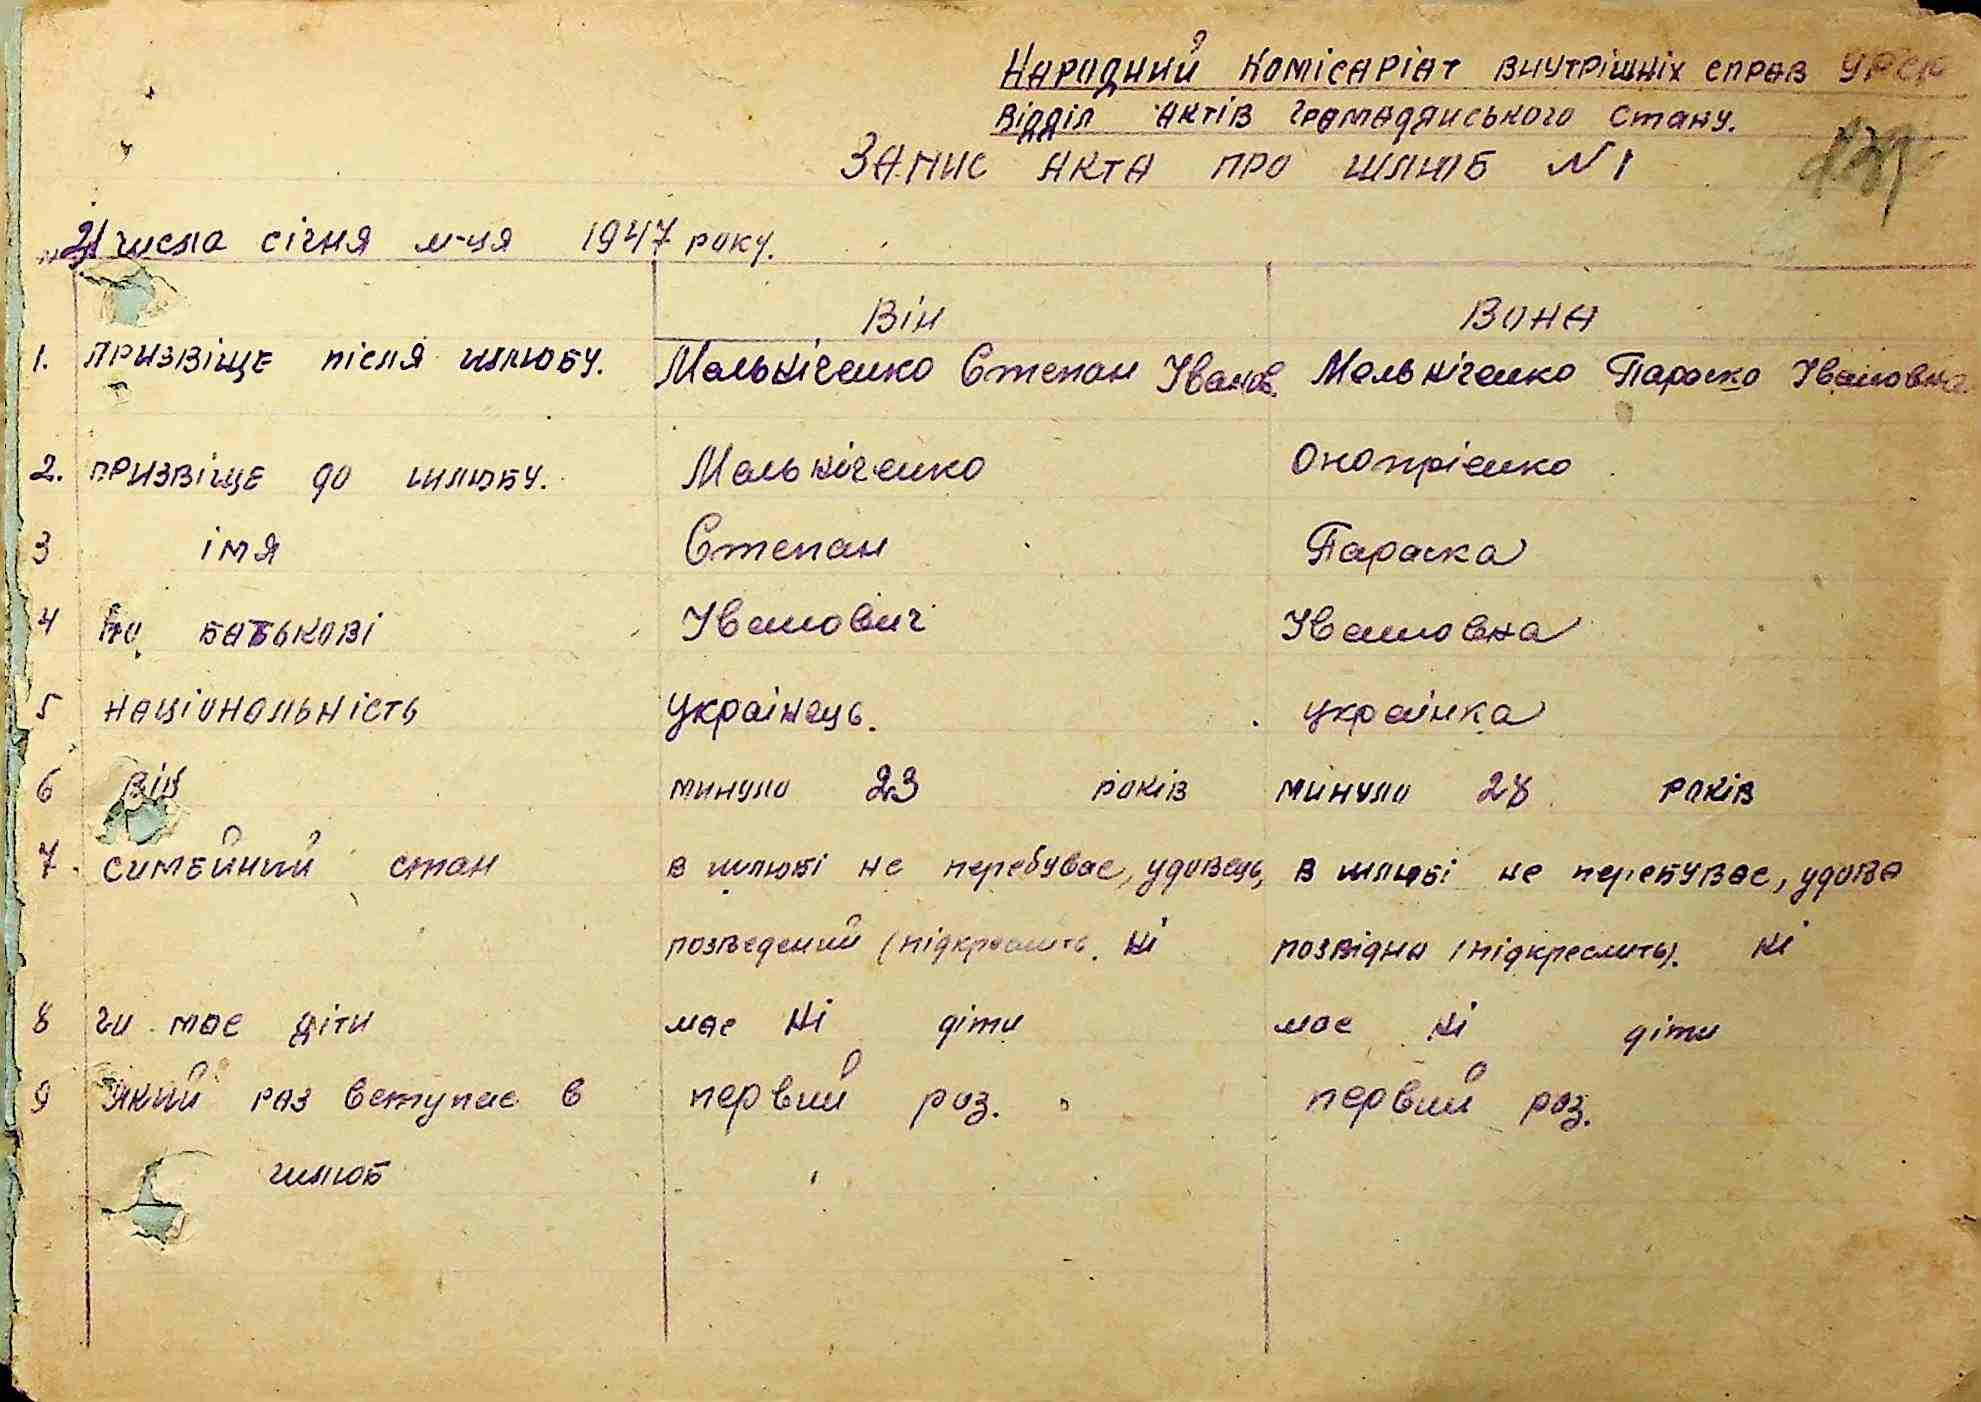 Народний Комісаріат внутрішніх справ УРСР
Відділ актів громадянського стану.
Запис акта про шлюб №1
21 числа січня м-ця 1947 року.
Він Вона
1. призвіще після шлюбу. Мельніченко Степан Іванов. Мельніченко Параско Івановна
2. призвіще до шлюбу. Мельніченко Оноприєнко
3 імя Степан Параска
4 по батькові Іванович Івановна
5 національність українець. українка
6 вік минуло 23 років минуло 28 років
7. симейний стан в шлюбі не перебуває, удовець, в шлюбі не перебуває, удова
розведений (підкреслить. ні розвідна (підкреслить). ні
8 чи має діти має ні діти має ні діти
9 який раз вступає в первий раз. первий раз.
шлюб